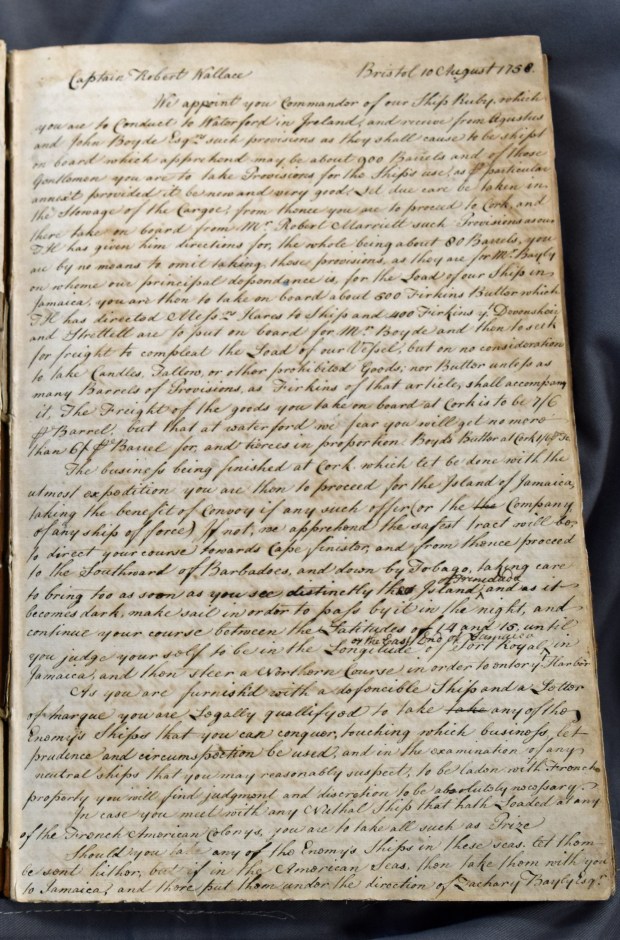 Captain Robert Wallace Bristol 10 August 1758.
We appoint you Commander of our Ship Ruby, which
you are to Conduct to Waterford in Ireland, and receive from Agustus
and John Boyde Esqrs such provisions as they shall cause to be shipt
on board which apprehend may be about 900 Barrels and of those
Gentlemen you are to take Provisions for the Ship's use, as particular
annex't provided it be new and very good. Let due care be taken in
the Stowage of the Cargoe; from thence you are to proceed to Cork, and
there take on board from Mr. Robert Marriett such Provisions as our
TH has given him directions for, the whole being about 80 Barrels, you
are by no means to omit taking these provisions, as they are for Mr. Bayly
on whome our principal dependance is, for the Load of our Ship in
Jamaica, you are then to take on board about 500 Firkins Butter which
TH has directed Messrs. Hares to Ship and 400 Firkins ye. Devonsheir
and Strettell are to put on board for Mr. Boyde and then to seek
for freight to compleat the Load of our Vessel, but on no consideration
to take Candles, Tallow, or other prohibited Goods; nor Butter unless as
many Barrels of Provisions, as Firkins of that article, shall accompany
it, The Freight of the goods you take on board at Cork is to be 7/6
⅌ Barrel, but that at waterford we fear you will get no more
than 6/ ⅌ Barrel for, and tierces in proportion. Boyds Butter at Cork
The business being finished at Cork, which let be done with the
utmost expedition you are then to proceed for the Island of Jamaica,
taking the benefit of Convoy if any such offer (or the the Company
of any ship of force) If not, we apprehend the safest tract will be,
to direct your course towards Cape finister, and from thence proceed
to the Southward of Barbadoes, and down by Tobago, taking care
to bring too as soon as you see distinctly the Island of Trinidada, and as it
becomes dark, make sail in order to pass by it in the night, and
continue your course between the Latitudes of 14 and 15, until
you judge your self to be in the Longitude of or the East End of Jamaica Port Royal, in
Jamaica, and then steer a Northern Course in order to enter ye Harbor
As you are furnish'd with a defencible Ship and a Letter
of marque you are Legally quallifyed to take take any of the
Enemy's Ships that you can conquer, touching which business, let
prudence and circumspection be used, and in the examination of any
neutral ships that you may reasonably suspect, to be laden with French
property you will find judgment and discretion to be absolutely necessary.
In case you meet with any Nuthal Ship that hath Loaded at any
of the French American Colonys, you are to take all such as Prize
Should you take any of the Enemy's Ships in these seas, let them
be sent hither, but if in the American Seas, then take them with you
to Jamaica, and there put them under the direction of Zachary Bayly Esqr.